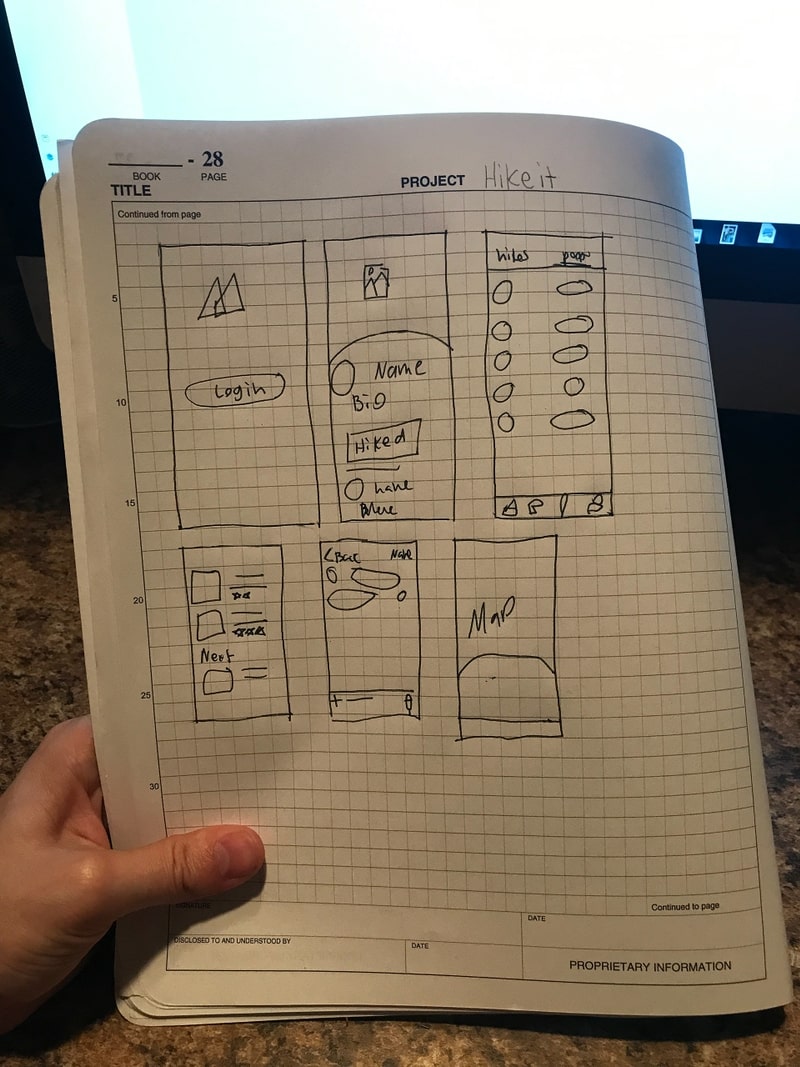 - 28
BOOK PAGE
TITLE
PROJECT Hike it
Continued from page
5
10
15
20
25
30
Login
Name
Bio
Hiked
hikes
< Back Name
Next
Map
SIGNATURE
Continued to page
DATE
DISCLOSED TO AND UNDERSTOOD BY
DATE
PROPRIETARY INFORMATION